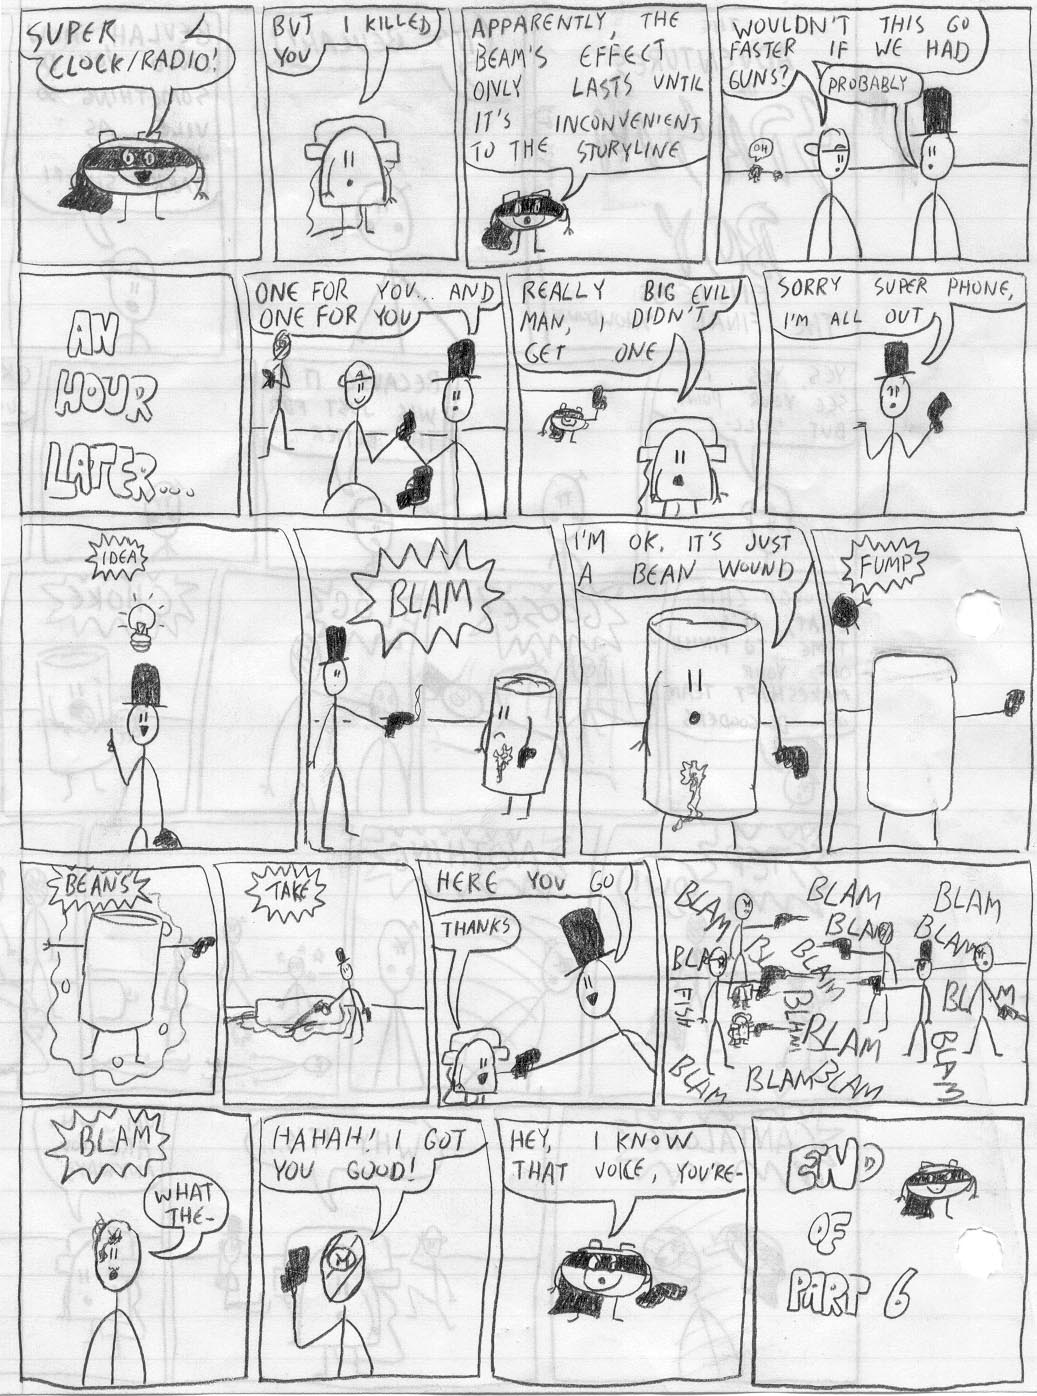 SUPER
CLOCK/RADIO!
BUT I KILLED
YOU
APPARENTLY, THE
BEAM'S EFFECT
ONLY LASTS UNTIL
IT'S INCONVENIENT
TO THE STORYLINE
WOULDN'T THIS GO
FASTER IF WE HAD
GUNS?
PROBABLY
OH
AN
HOUR
LATER...
ONE FOR YOU... AND
ONE FOR YOU
REALLY BIG EVIL
MAN, I DIDN'T
GET ONE
SORRY SUPER PHONE,
I'M ALL OUT
IDEA
BLAM
I'M OK, IT'S JUST
A BEAN WOUND
FUMP
BEANS
TAKE
HERE YOU GO
THANKS
BLAM
BLAM
BLAM
BLAM
BLAM
BLAM
FISH
BLAM
BLAM
BLAM
BLAM
BLAM
BLAM
BLAM
BLAM
BLAM
WHAT
THE-
HAHAH! I GOT
YOU GOOD!
HEY, I KNOW
THAT VOICE, YOU'RE-
END
OF
PART 6